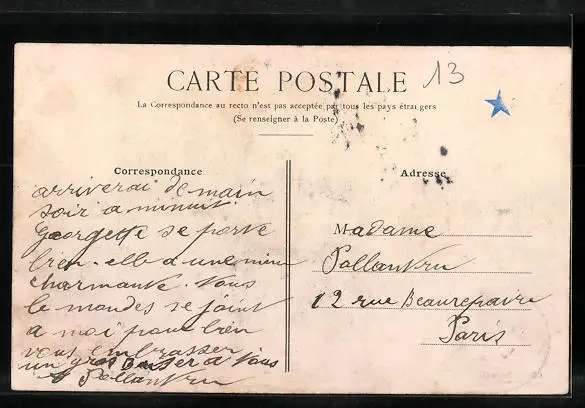 CARTE POSTALE
13
La Correspondance au recto n'est pas acceptée par tous les pays étrangers
(Se renseigner à la Poste)
Correspondance
arriverai demain
soir a minuit
Georgette se porte
bien. elle a une mine
charmante. Vous
le mondes se joint
a moi pour bien
vous embrasser
un gros Baiser a Vous
Adresse
Madame
12 rue Beaurepaire
Paris